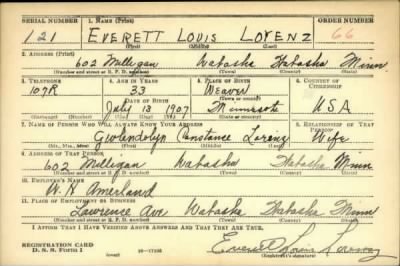 SERIAL NUMBER 1. NAME (Print) ORDER NUMBER
121 EVERETT LOUIS LORENZ 66
(First) (Middle) (Last)
2. ADDRESS (Print)
602 Milligan Wabasha Wabasha Minn
(Number and street or R. F. D. number) (Town) (County) (State)
3. TELEPHONE 4. AGE IN YEARS 5. PLACE OF BIRTH 6. COUNTRY OF CITIZENSHIP
107R 33 Weaver
DATE OF BIRTH (Town or county)
July 13 1907 Minnesota USA
(Exchange) (Number) (Mo.) (Day) (Yr.) (State or country)
7. NAME OF PERSON WHO WILL ALWAYS KNOW YOUR ADDRESS 8. RELATIONSHIP OF THAT PERSON
Gwendolyn Constance Lorenz Wife
(Mr., Mrs., Miss) (First) (Middle) (Last)
9. ADDRESS OF THAT PERSON
602 Milligan Wabasha Wabasha Minn
(Number and street or R. F. D. number) (Town) (County) (State)
10. EMPLOYER'S NAME
W. H. Amerland
11. PLACE OF EMPLOYMENT OR BUSINESS
Lawrence Ave Wabasha Wabasha Minn
(Number and street or R. F. D. number) (Town) (County) (State)
I AFFIRM THAT I HAVE VERIFIED ABOVE ANSWERS AND THAT THEY ARE TRUE.
REGISTRATION CARD
D. S. S. FORM 1 Everett Louis Lorenz
(over) (Registrant's signature)